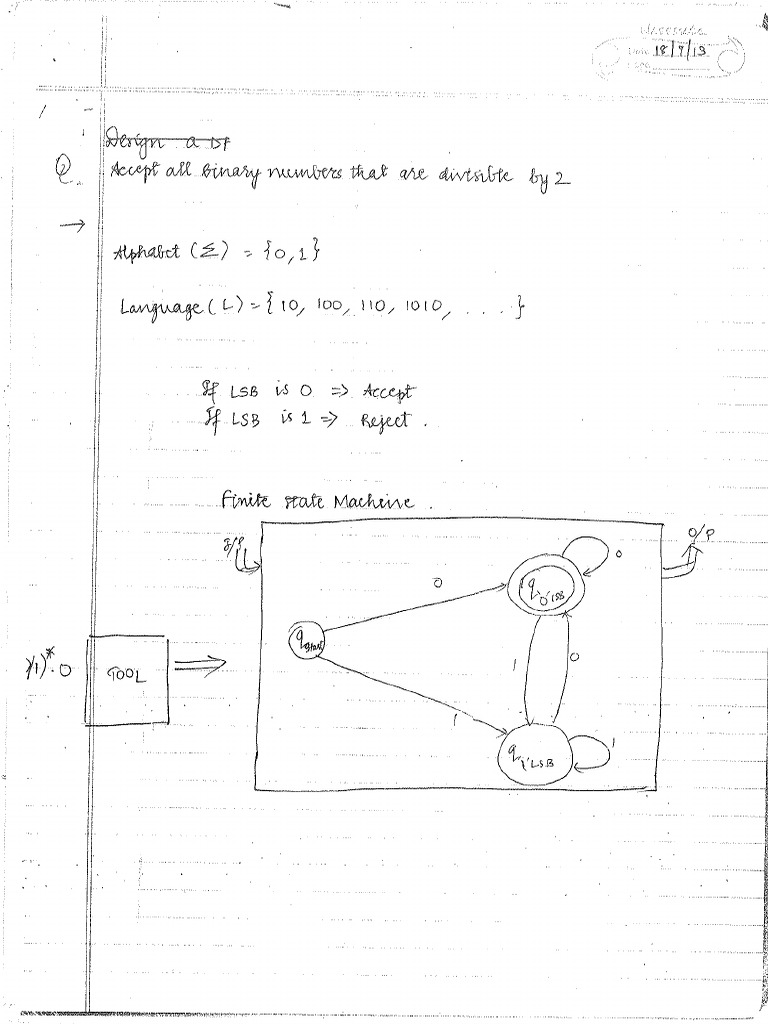 Date 18/7/13
Design a DF
Q. Accept all Binary numbers that are divisible by 2
→
Alphabet (Σ) = {0,1}
Language (L) = {10, 100, 110, 1010, . . . . }
If LSB is 0 => Accept
If LSB is 1 => Reject .
Finite state Machine .
I/P
O/P
0
0
q'0'LSB
qstart
1
0
/1)*.0
TOOL
1
q'1'LSB
1